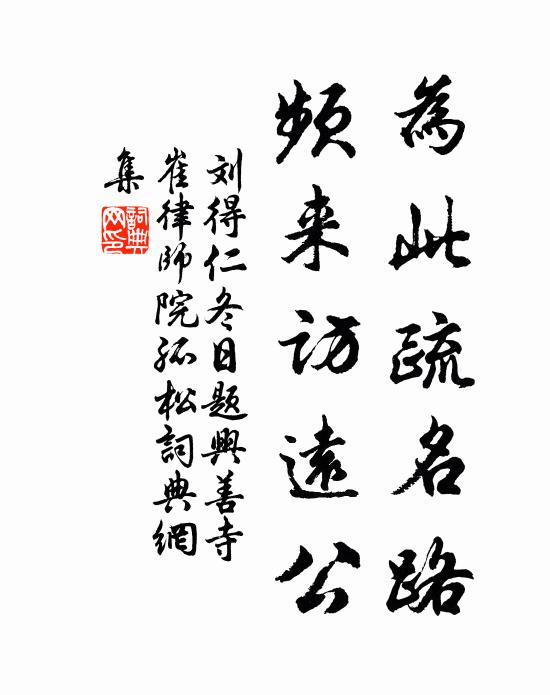 為此疏名路
頻来访遠公
刘得仁冬日題興善寺
崔律師院孤松詞典網
集
詞典
网印